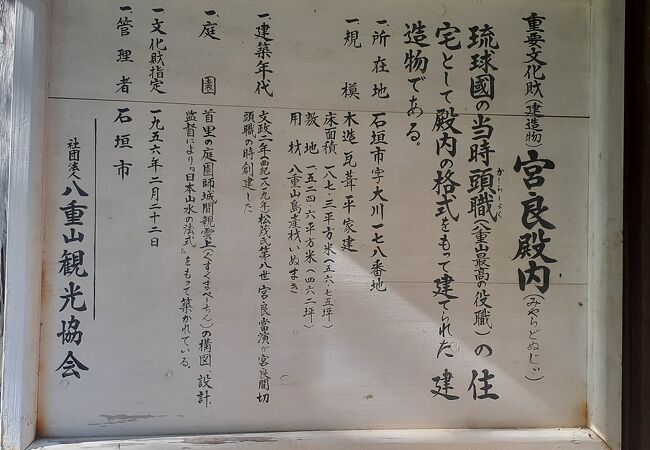 重要文化財(建造物)宮良殿内(みやらどぬじい)
琉球國の当時頭職(八重山最高の役職)の住
かしらしょく
宅として殿内の格式をもって建てられた建
造物である。
一、所在地 石垣市字大川一七八番地
一、規模 木造瓦葺平家建
床面積 一八七・三平方米(五六・七五坪)
敷地 一五二四・六平方米(四六二坪)
用材 八重山島産材いぬまき
一、建築年代 文政二年(西紀一八一九年)松茂氏第八世宮良當演が宮良間切
頭職の時創建した
一、庭園 首里の庭園師城間親雲上(ぐすくまぺーちん)の構図、設計、
監督により「日本山水の法式」をもって築かれている。
一、文化財指定 一九五六年二月二十二日
一、管理者 石垣市
社団法人八重山観光協会